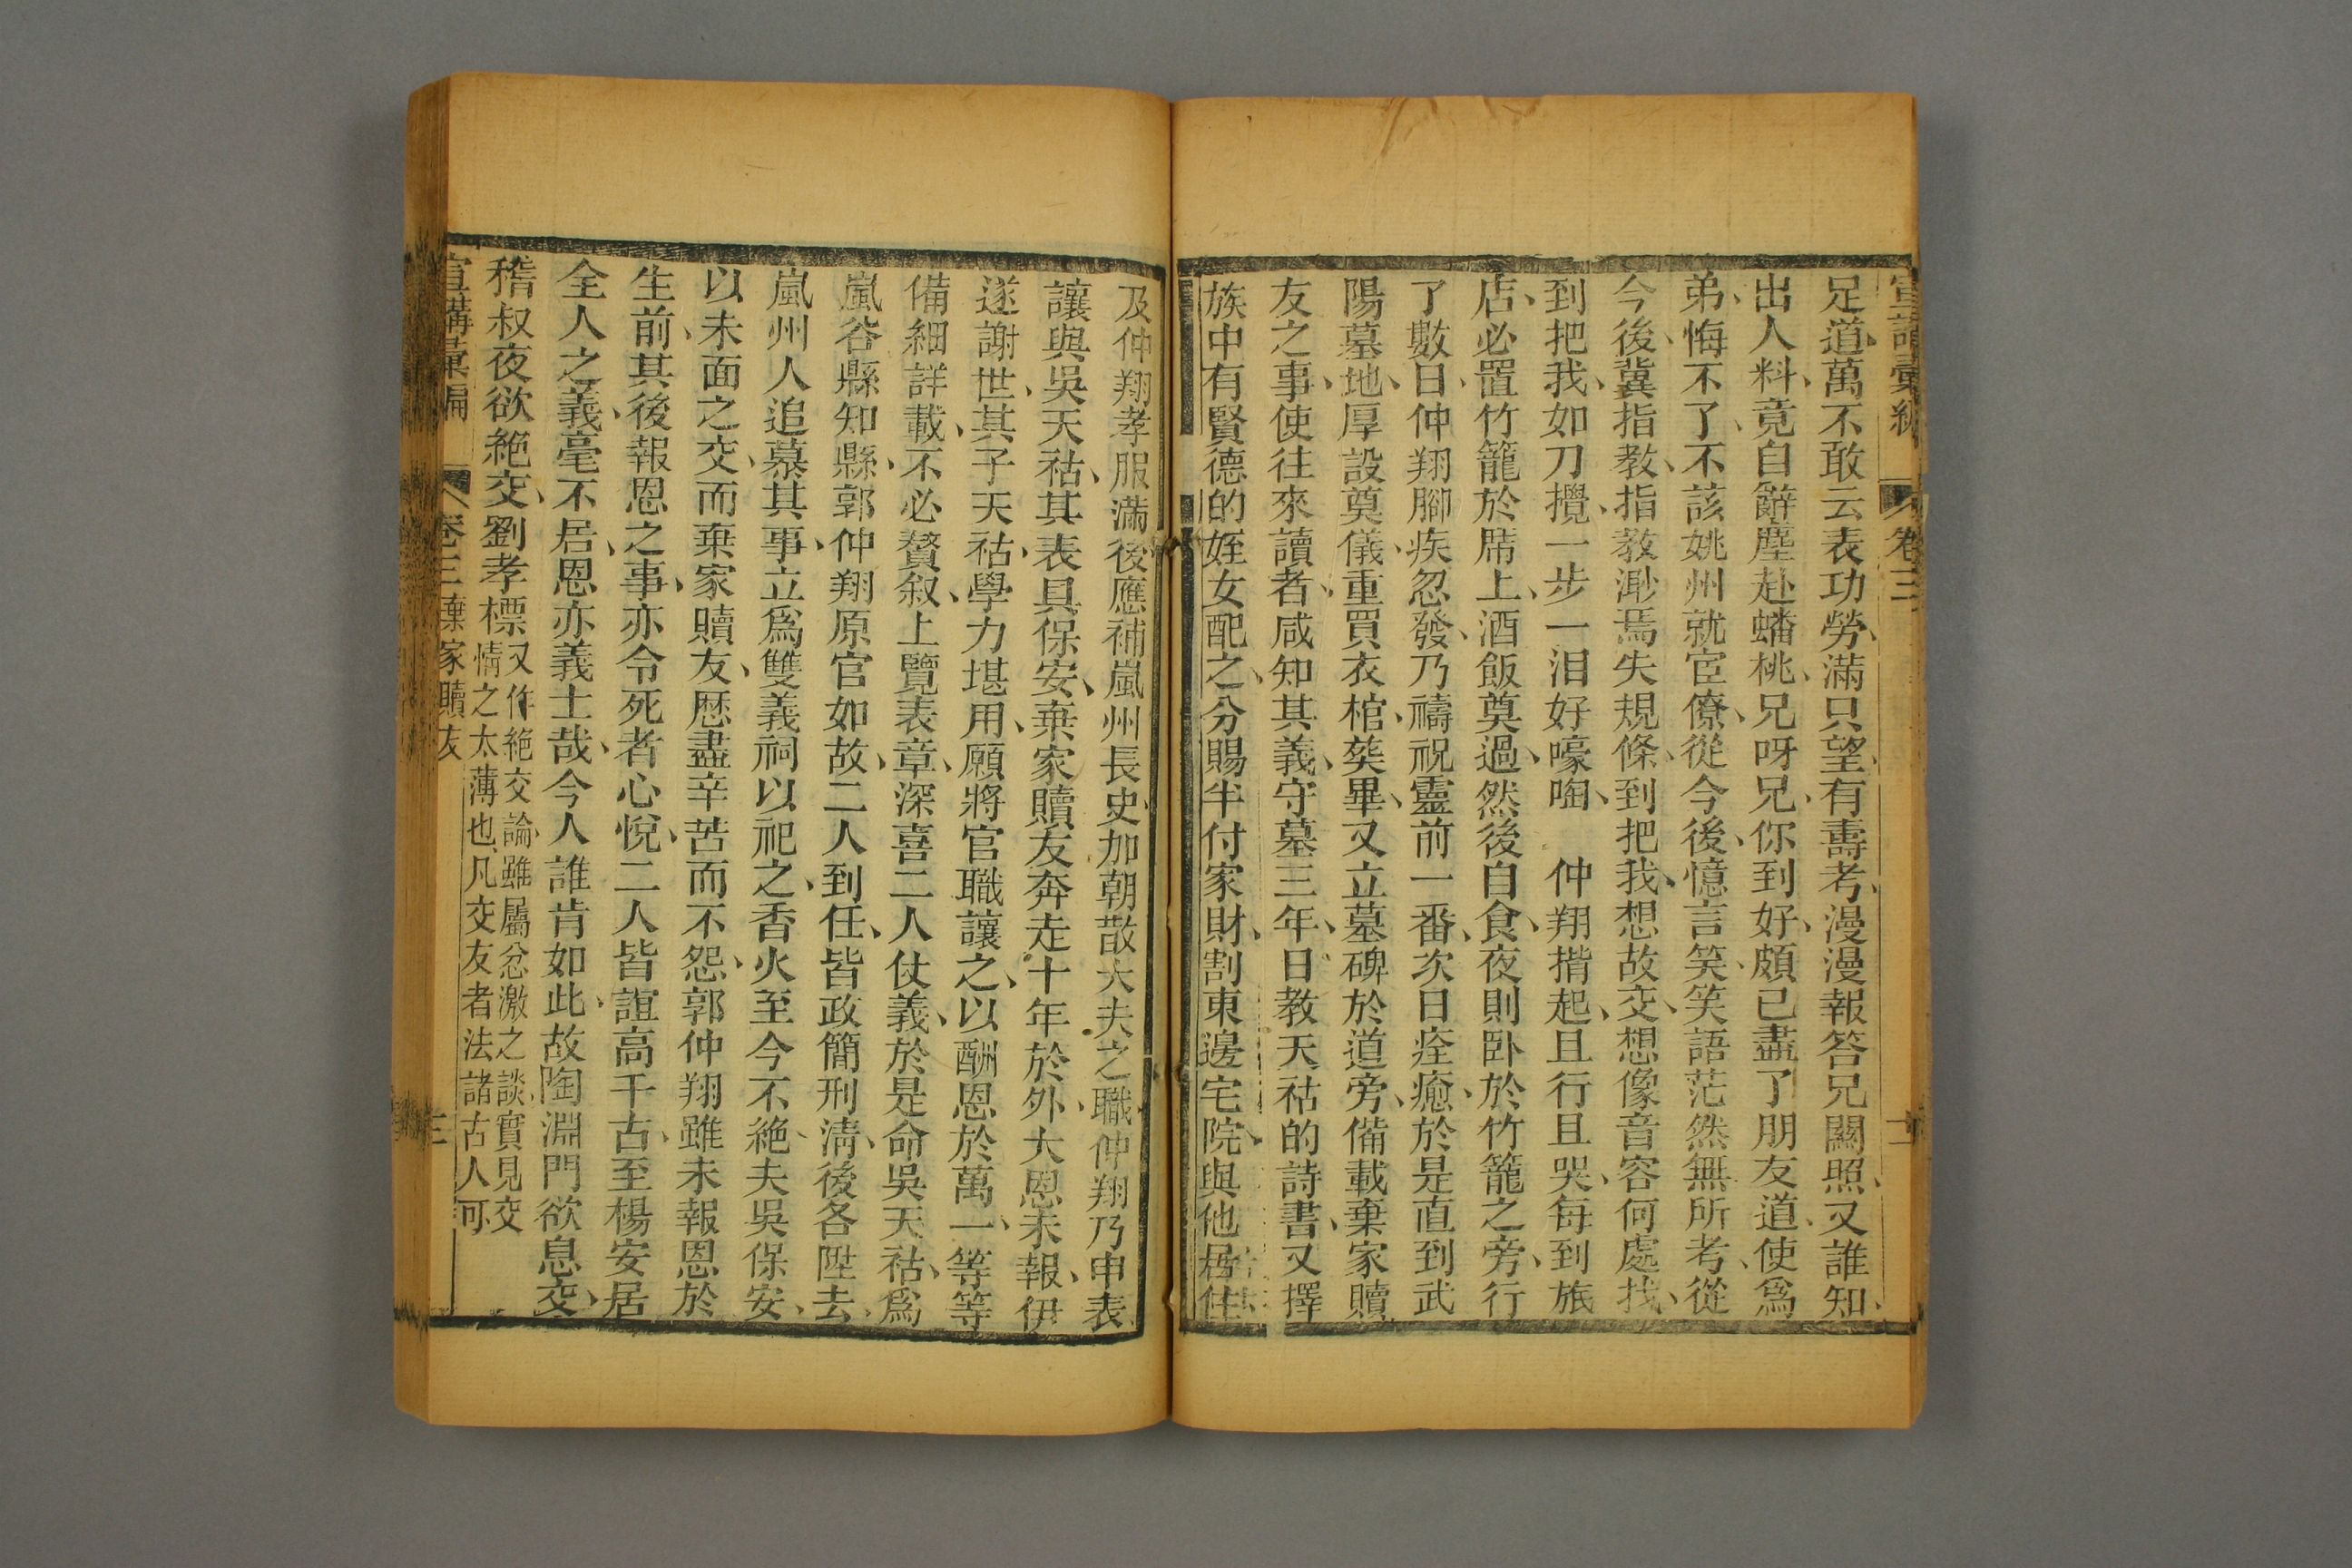 宣講彙編
卷三
足道、萬不敢云表功勞、滿只望、有壽考、漫漫報答兄關照、又誰知、
出人料、竟自辭塵赴蟠桃、兄呀兄、你到好、頗已盡了朋友道、使爲
弟、悔不了、不該姚州就宦僚、從今後、憶言笑、笑語茫然無所考、從
今後、冀指教、指教渺焉失規條、到把我、想故交、想像音容何處找、
到把我、如刀攪、一步一泪好嚎啕、 仲翔揹起、且行且哭、每到旅
店、必置竹籠於席上、酒飯奠過、然後自食、夜則卧於竹籠之旁、行
了數日、仲翔腳疾忽發、乃禱祝靈前一番、次日痊癒、於是直到武
陽墓地、厚設奠儀、重買衣棺、葬畢、又立墓碑於道旁、備載棄家贖
友之事、使往來讀者、咸知其義、守墓三年、日教天祜的詩書、又擇
族中有賢德的姪女配之、分賜半付家財、割東邊宅院、與他居住
及仲翔孝服滿後應補嵐州長史加朝散大夫之職仲翔乃申表
讓與吳天祜、其表具保安、棄家贖友奔走十年於外、大恩未報、伊
遂謝世、其子天祜、學力堪用、願將官職讓之、以酬恩於萬一、等等
備細詳載、不必贅叙、上覽表章、深喜二人仗義、於是命吳天祜、爲
嵐谷縣知縣、郭仲翔原官如故、二人到任、皆政簡刑清、後各陞去、
嵐州人追慕其事、立爲雙義祠以祀之、香火至今不絶夫吳保安、
以未面之交、而棄家贖友、歷盡辛苦而不怨、郭仲翔雖未報恩於
生前、其後報恩之事、亦令死者心悅、二人皆誼高千古、至楊安居
全人之義、毫不居、恩亦義士哉、今人誰肯如此、故陶淵門欲息交、
稽叔夜欲絶交、劉孝標又作絶交論、雖屬忿激之談、實見交
情之太薄也、凡交友者法諸古人可、
宣講彙編
卷三棄家贖友
三